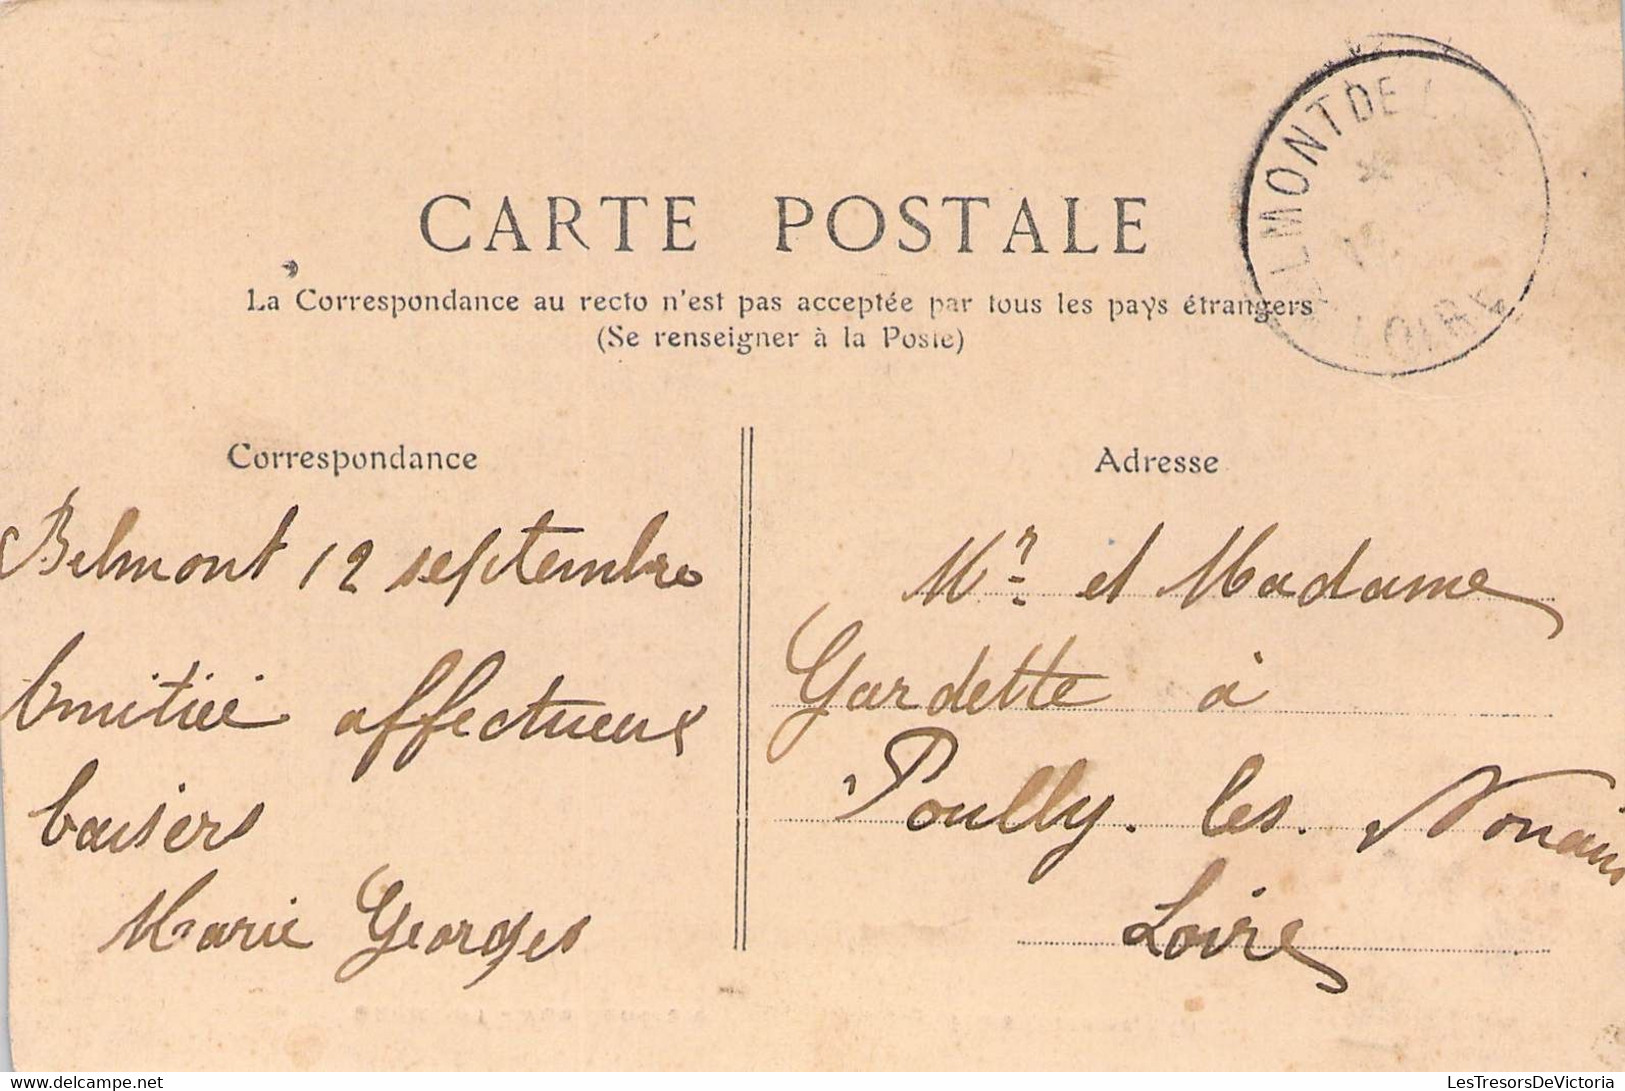 CARTE POSTALE
La Correspondance au recto n'est pas acceptée par tous les pays étrangers
(Se renseigner à la Poste)
Correspondance
Belmont 12 septembre
Amitiéé affectueux
baisers
Marie Georges
Adresse
Mr. et Madame
Gardette à
Pouilly. les. Nonains
Loire
BELMONT DE
LOIRE
LesTresorsDeVictoria